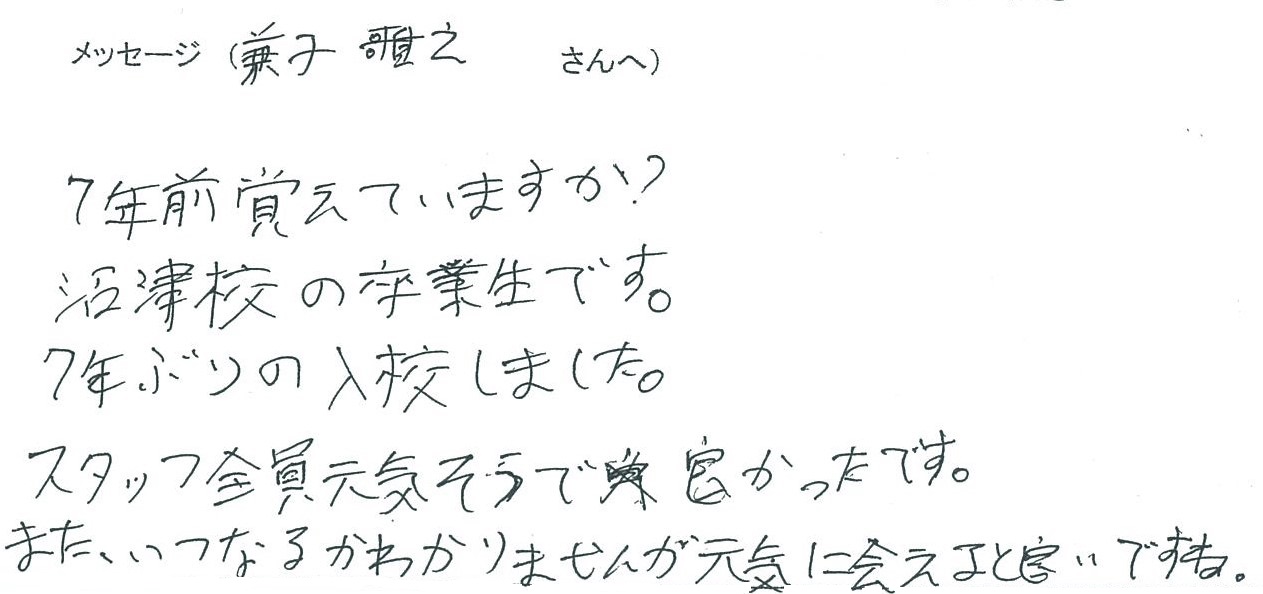 メッセージ (兼子 さんへ)
7年前覚えていますか?
沼津校の卒業生です。
7年ぶりの入校しました。
スタッフ全員元気そうで良かったです。
また、いつなるかわかりませんが元気に会えると良いですね。